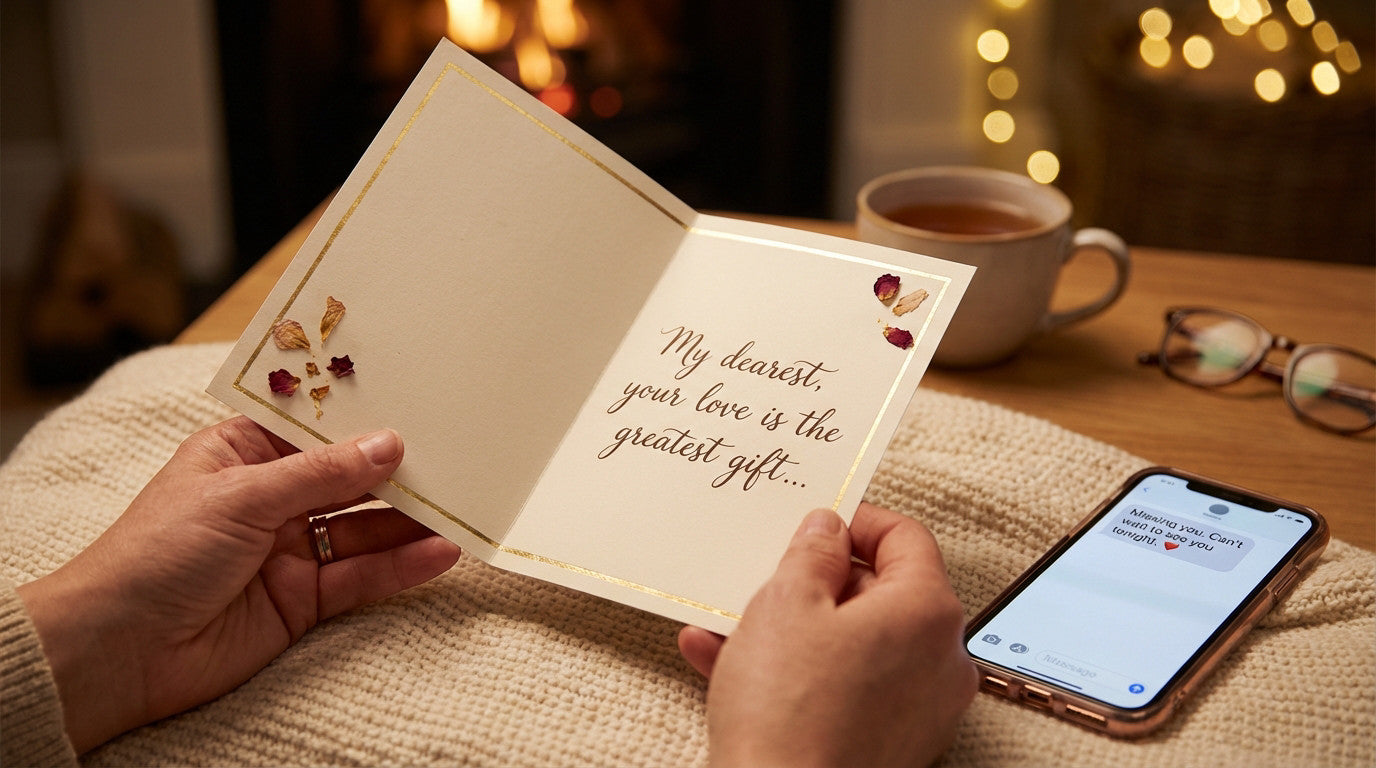 My dearest,
your love is the
greatest gift...
Missing you. Can't
wait to see you
tonight. ❤️